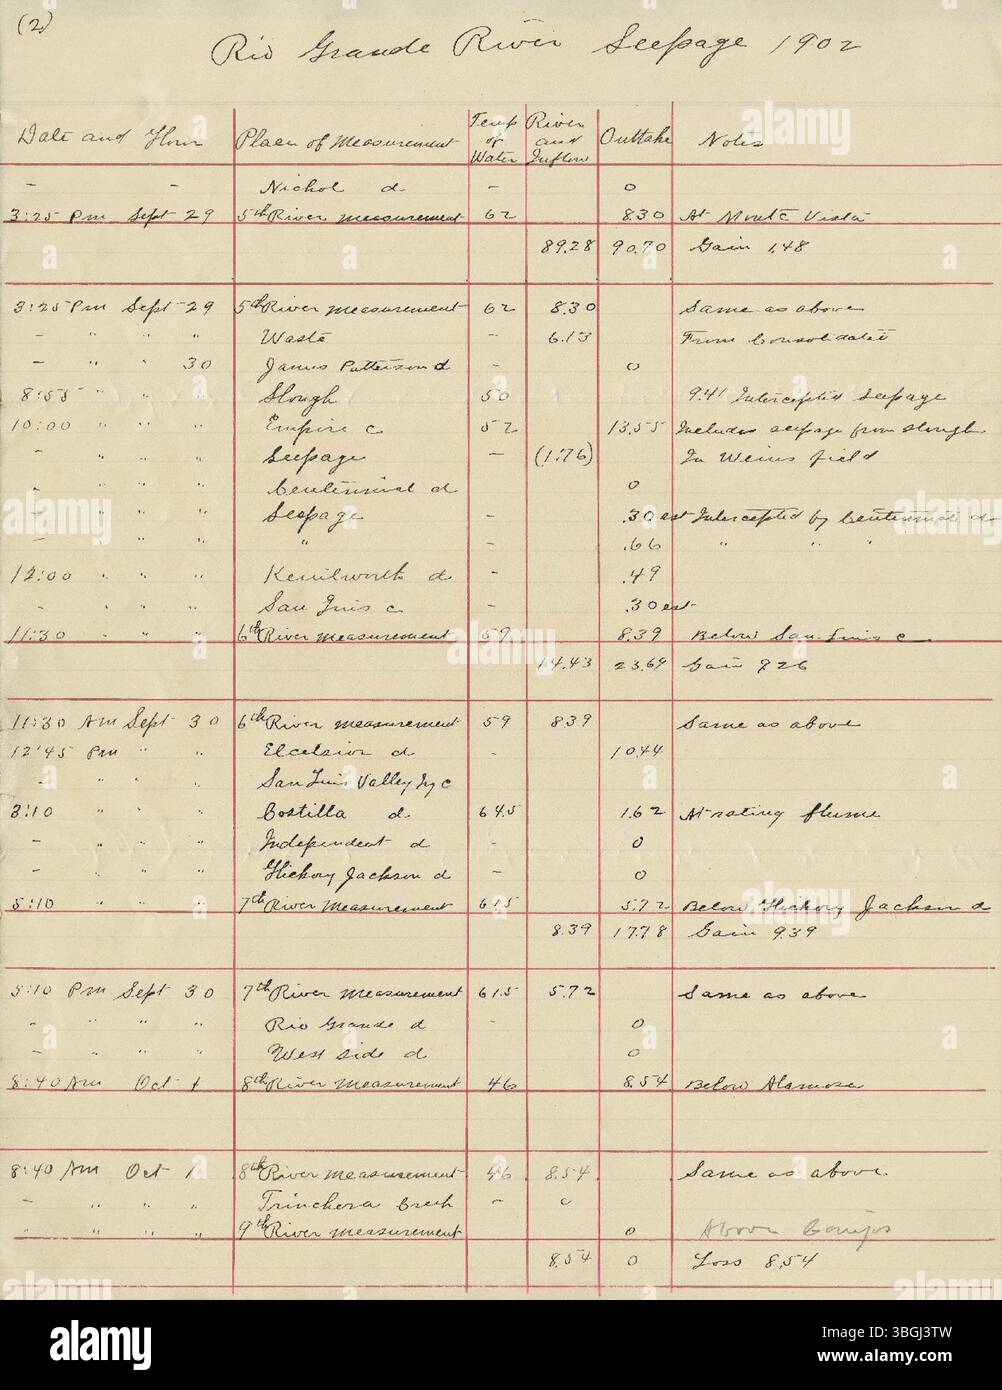 (2)
Rio Grande River Seepage 1902
Date and Hour Place of Measurement Temp of Water River and Inflow Outtake Notes
- - Nichol d - 0
3:25 Pm Sept 29 5th River measurement 62 8.30 At Monte Vista
89.28 90.70 Gain 1.48
3:25 Pm Sept 29 5th River Measurement 62 8.30 Same as above
- " " Waste - 6.13 From Consolidated
- " " 30 James Patterson d - 0
8:55 " " " Slough 50 9.41 Intercepted Seepage
10:00 " " " Empire c 52 13.55 Includes seepage from slough
- " " " Seepage - (1.76) In Weiss field
- " " " Centennial d 0
- " " " Seepage - .30 est Intercepted by Centennial d
- " " " " - .66 " " "
12:00 " " " Kenilworth d - .49
- " " " San Luis c - .30 est
11:30 " " " 6th River Measurement 59 8.39 Below San Luis c
14.43 23.69 Gain 9.26
11:30 AM Sept 30 6th River Measurement 59 8.39 Same as above
12:45 Pm " " Elcelsior d - 10.44
- " " " San Luis Valley Ig c
3:10 " " " Costilla d 64.5 1.62 At rating flume
- " " " Independent d - 0
- " " " Hickory Jackson d - 0
5:10 " " " 7th River Measurement 61.5 5.72 Below Hickory Jackson d
8.39 17.78 Gain 9.39
5:10 Pm Sept 30 7th River Measurement 61.5 5.72 Same as above
- " " " Rio Grande d - 0
- " " " West side d 0
8:40 Am Oct 1 8th River Measurement 46 8.54 Below Alamosa
8:40 Am Oct 1 8th River Measurement 46 8.54 Same as above
- " " " Trinchera Creek - 0
- " " " 9th River Measurement 0 Above Conejos
8.54 0 Loss 8.54
alamy
Image ID: 3BGJ3TW
www.alamy.com